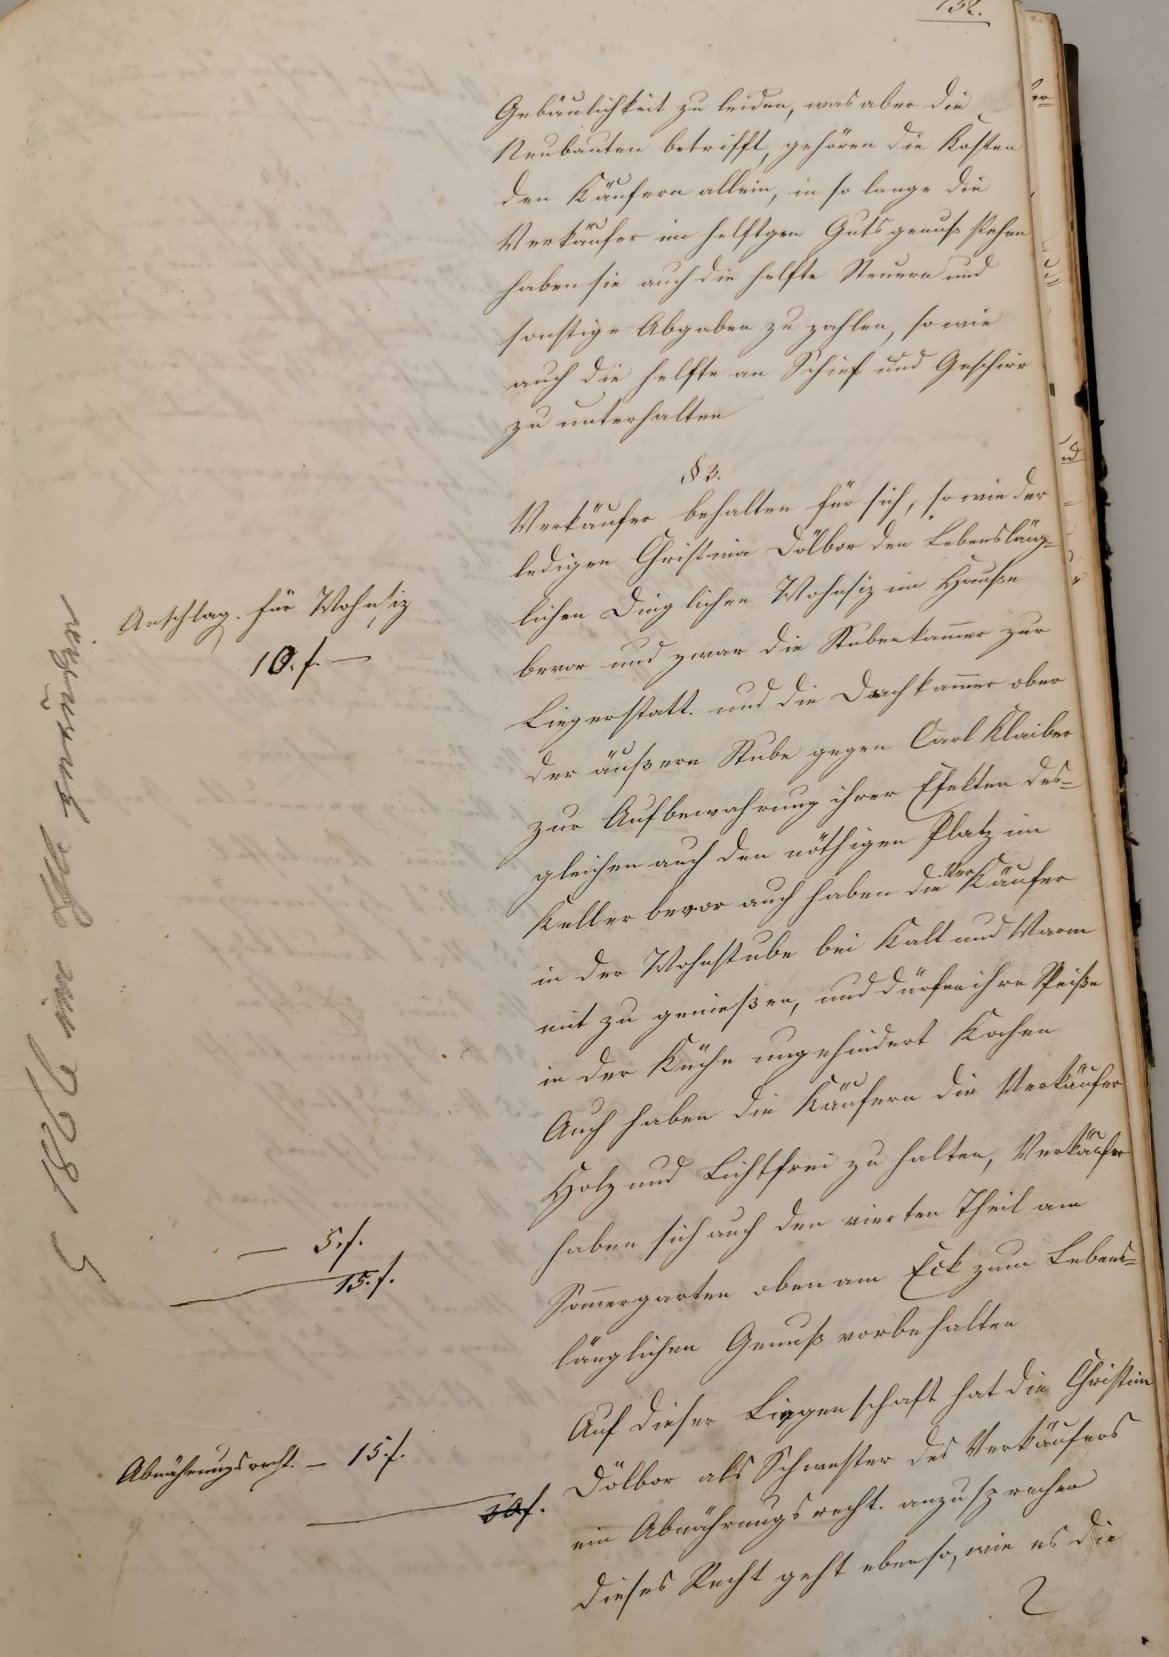 152.
Gebäulichkeit zu leiden, was aber die
Neubauten betrifft, gehören die Kosten
den Käufern allein, in so lange die
Verkäufer im helftgen Gutsgenuß stehen
haben sie auch die helfte Steuern und
sonstige Abgaben zu zahlen, so wie
auch die helfte an Schief und Geschirr
zu unterhalten
§ 3.
Verkäufer behalten für sich, so wie der
ledigen Christina Dölbor den Lebensläng=
lichen Dinglichen Wohnsiz im Hauße
bevor und zwar die Stubenkam̄er zur
Liegerstatt. und die Dachkam̄er ober
der äußern Stube gegen Carl Klaiber
zur Aufbewahrung ihrer Efekten des=
gleichen auch den nöthigen Platz im
Keller bevor auch haben die Verkäufer
in der Wohnstube bei Kalt und Warm
mit zu genießen, und dürfen ihre Speiße
in der Küche ungehindert Kochen
Auch haben die Käufern die Verkäufer
Holz und Lichtfrei zu halten, Verkäufer
haben sich auch den vierten Theil am
Som̄ergarten oben am Eck zum Lebens=
länglichen Genuß vorbehalten
Auf dieser Liegenschaft hat die Christina
Dölbor als Schwester des Verkäufers
ein Abnährungsrecht. anzusprechen
dieses Recht geht ebenso, wie es die
Anschlag. für Wohnsiz
10. f. —
— 5. f.
15. f.
Abnährungsrecht. — 15. f.
30 f.